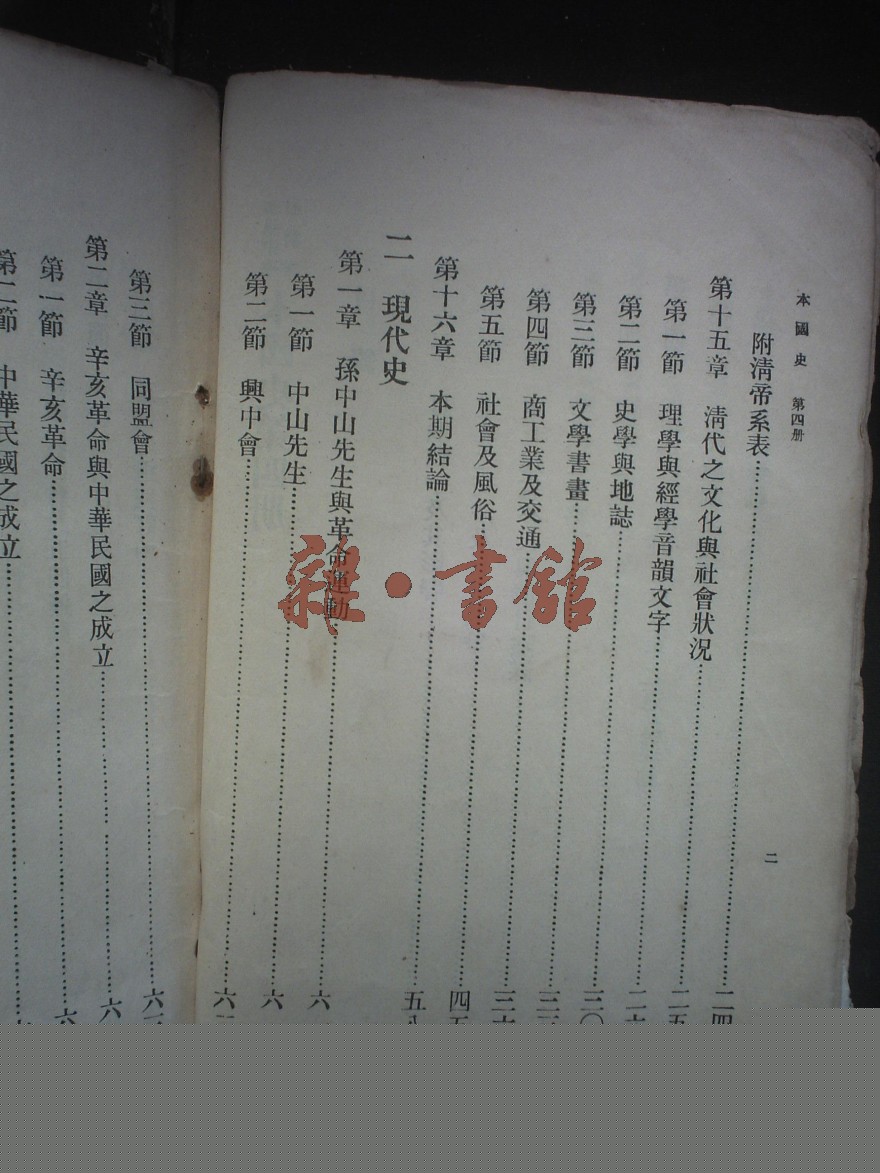 本國史 第四册
二
附淸帝系表
第十五章 淸代之文化與社會狀况 二四
第一節 理學與經學音韻文字 二五
第二節 史學與地誌
第三節 文學書畫 三〇
第四節 商工業及交通
第五節 社會及風俗
第十六章 本期結論 五八
二 現代史
第一章 孫中山先生與革命運動
第一節 中山先生
第二節 興中會
第三節 同盟會
第二章 辛亥革命與中華民國之成立
第一節 辛亥革命
第二節 中華民國之成立
雜·書館